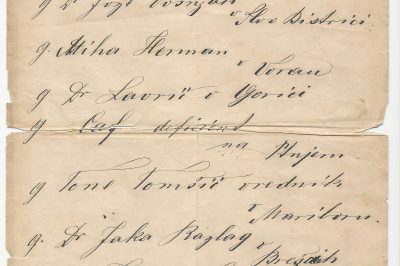 g Dr Jože Vošnjak
v Slov Bistrici.
g. Miha Herman
v Vorau
g Dr Lavrič v Gorici
g Caf deficient
na Ptujem
g Tone Tomšič vrednik
v Mariboru.
g. Dr Jaka Razlag
v Brežcih